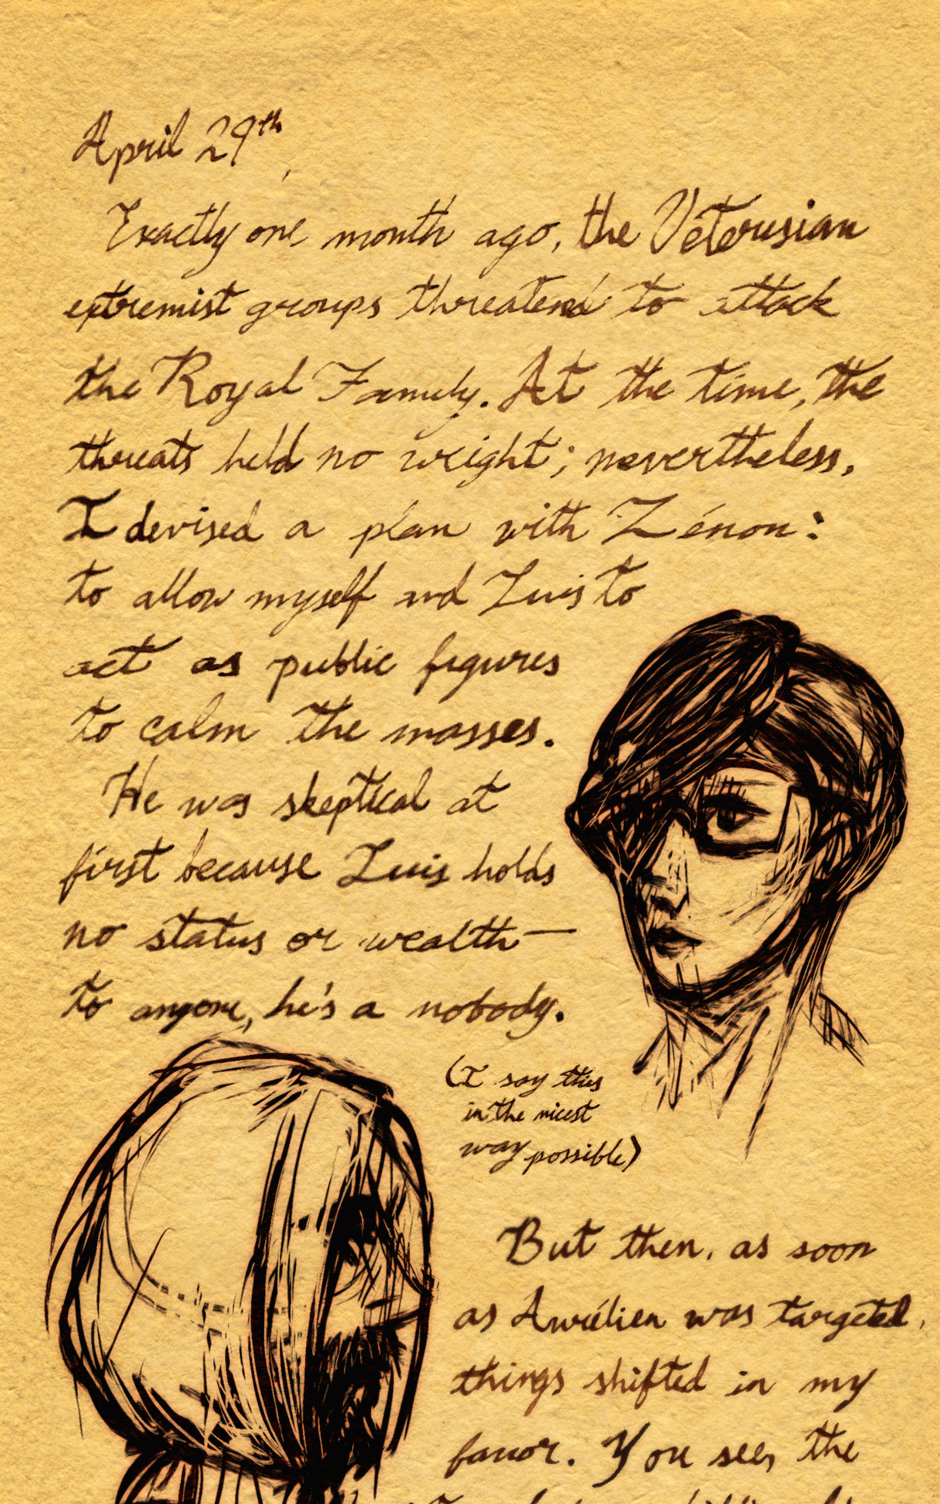 April 29th
Exactly one month ago, the Veterusian
extremist groups threatend to attack
the Royal Family. At the time, the
threats held no wright; nevertheless,
I devised a plan with Zénon:
to allow myself and Luis to
act as public figures
to calm the masses.
He was skeptical at
first because Luis holds
no status or wealth—
to anyone, he's a nobody.
(I say this
in the nicest
way possible)
But then, as soon
as Aurélien was targeted,
things shifted in my
favor. You see, the